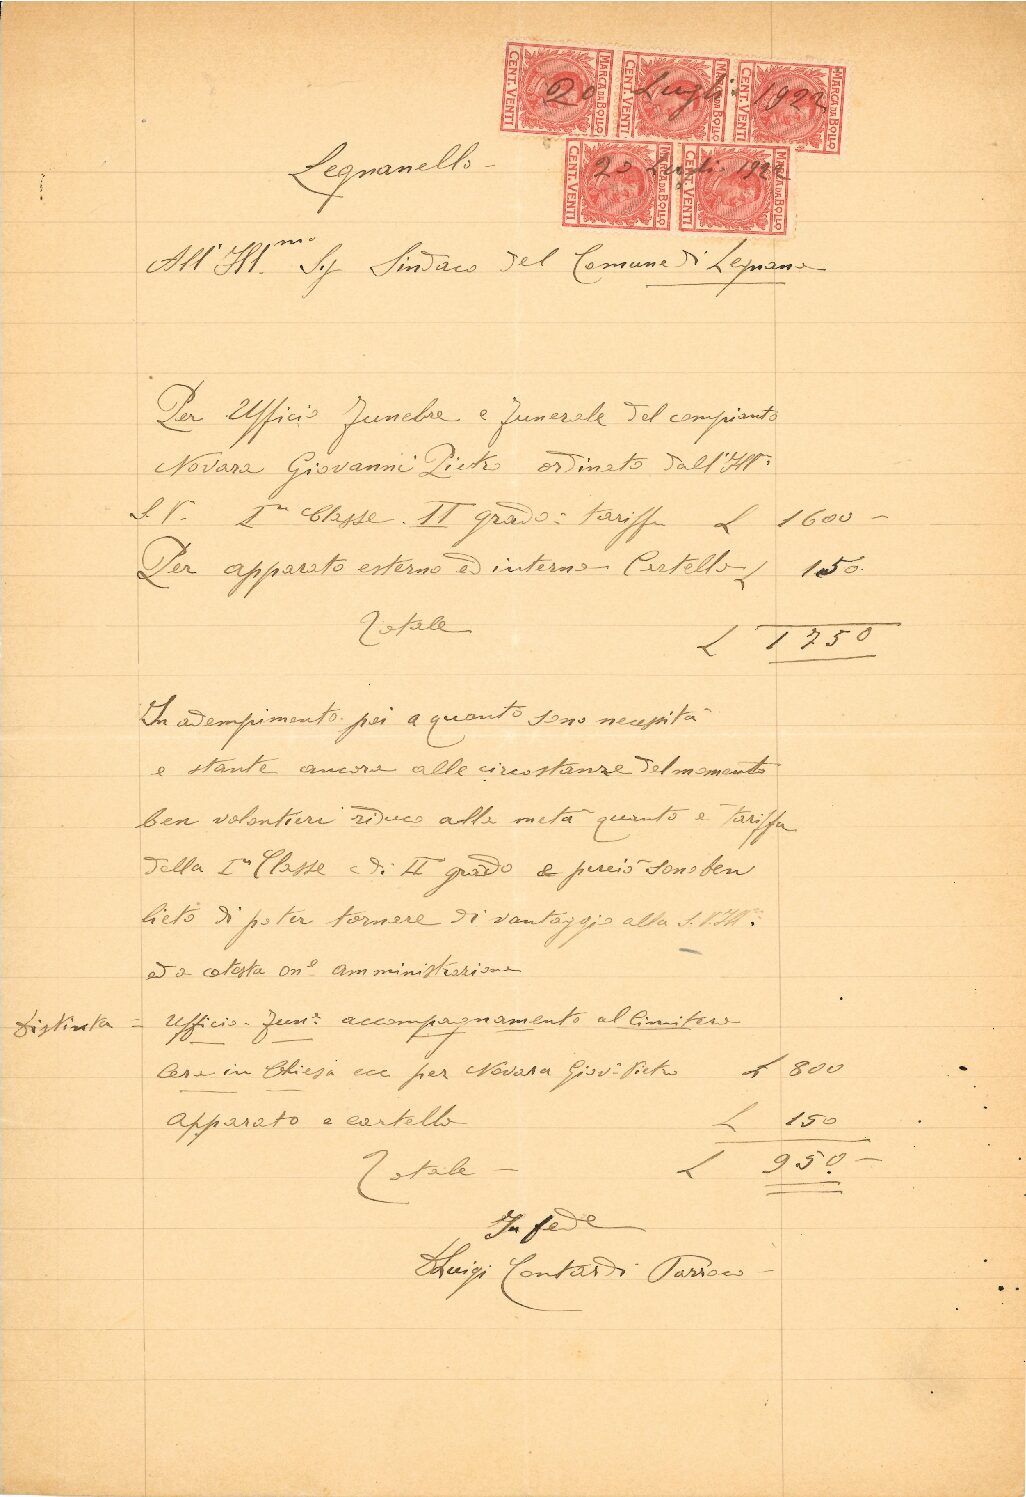 MARCA DA BOLLO CENT. VENTI
MARCA DA BOLLO CENT. VENTI
MARCA DA BOLLO CENT. VENTI
20 Luglio 1922
MARCA DA BOLLO CENT. VENTI
MARCA DA BOLLO CENT. VENTI
20 Luglio 1922
Legnanello -
All'Ill.mo Sig Sindaco del Comune di Legnano
Per Ufficio Funebre e Funerale del compianto
Novara Giovanni Pietro ordinato dall'Ill.
S.V. Ia Classe. II grado: tariffa £ 1600 -
Per apparato esterno ed interno Cartello £ 150.
Totale £ 1750
In adempimento poi a quanto sono necessità
e stante ancora alle circostanze del momento
ben volontieri riduco alla metà quanto è tariffa
della Ia Classe e di II grado e perciò sono ben
lieto di poter tornare di vantaggio alla S.V.Ill.
ed a cotesta on.e amministrazione
Distinta = Ufficio. Fun. accompagnamento al Cimitero
Cera in Chiesa ecc per Novara Giov. Pietro £ 800
Apparato e cartello £ 150
Totale - £ 950. -
In fede
D Luigi Contardi Parroco -